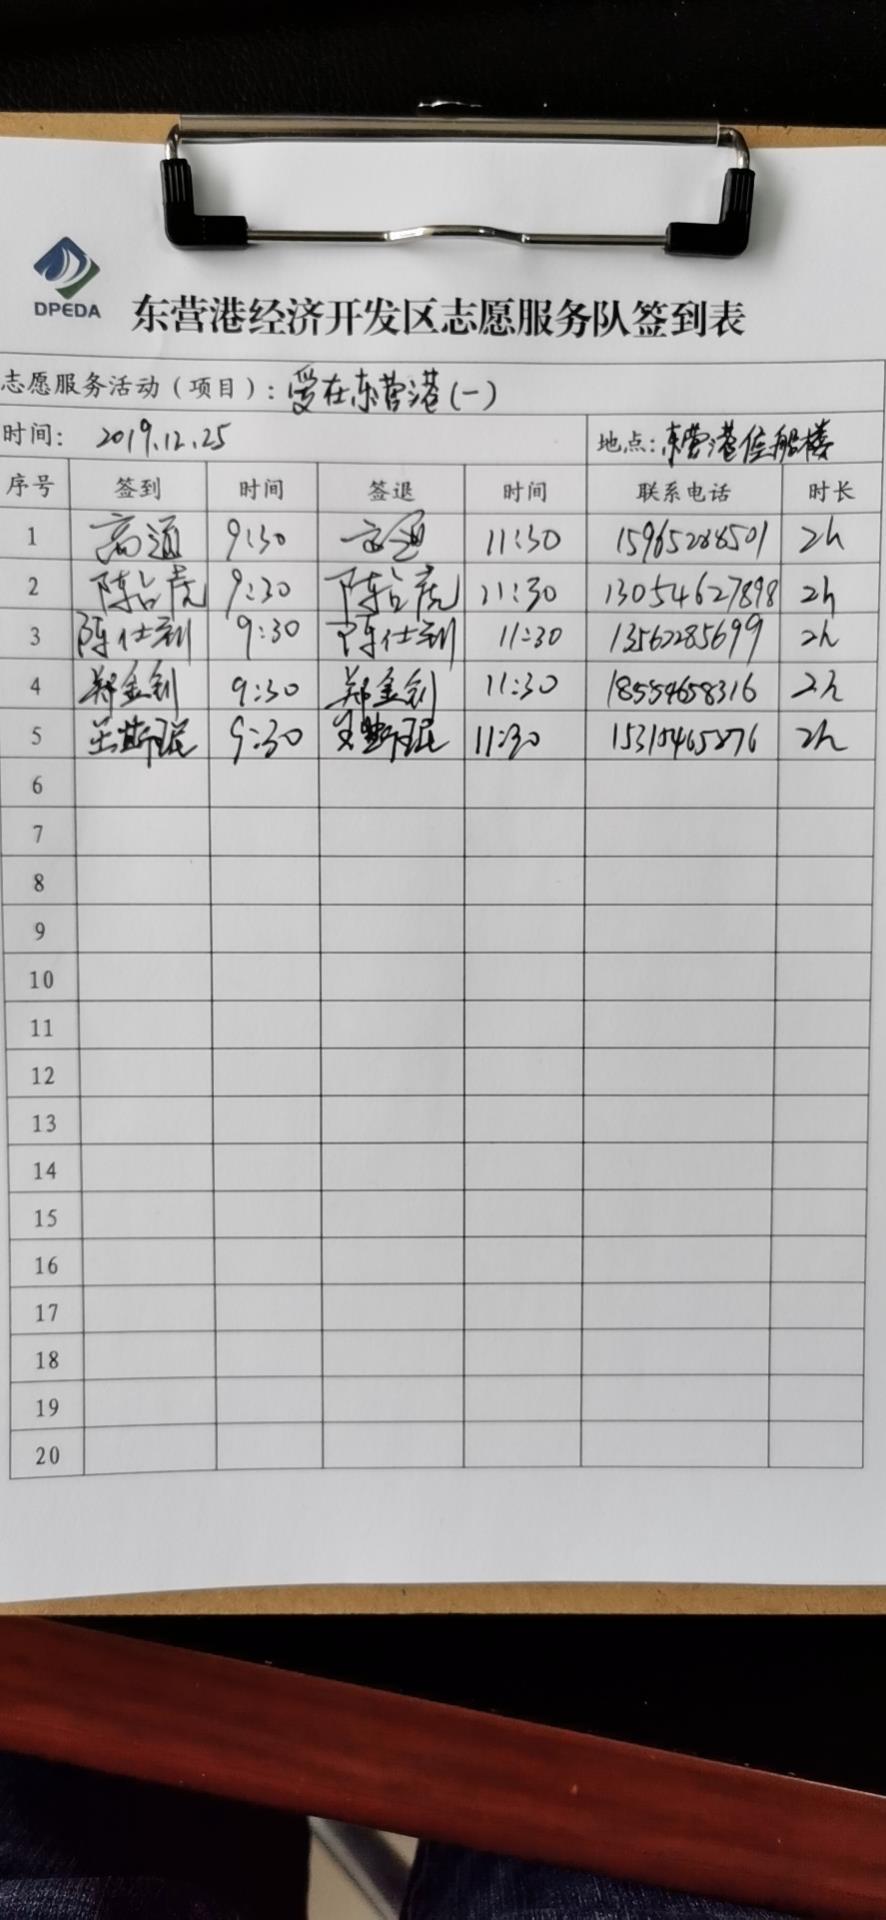 DPEDA
东营港经济开发区志愿服务队签到表
志愿服务活动（项目）：爱在东营港（一）
时间： 2019.12.25 地点：东营港信船楼
序号 签到 时间 签退 时间 联系电话 时长
1 高通 9:30 高通 11:30 15965288501 2h
2 陈占虎 9:30 陈占虎 11:30 13054627898 2h
3 陈仕钊 9:30 陈仕钊 11:30 13562285699 2h
4 郑金钊 9:30 郑金钊 11:30 18554658316 2h
5 9:30 11:30 2h
6
7
8
9
10
11
12
13
14
15
16
17
18
19
20